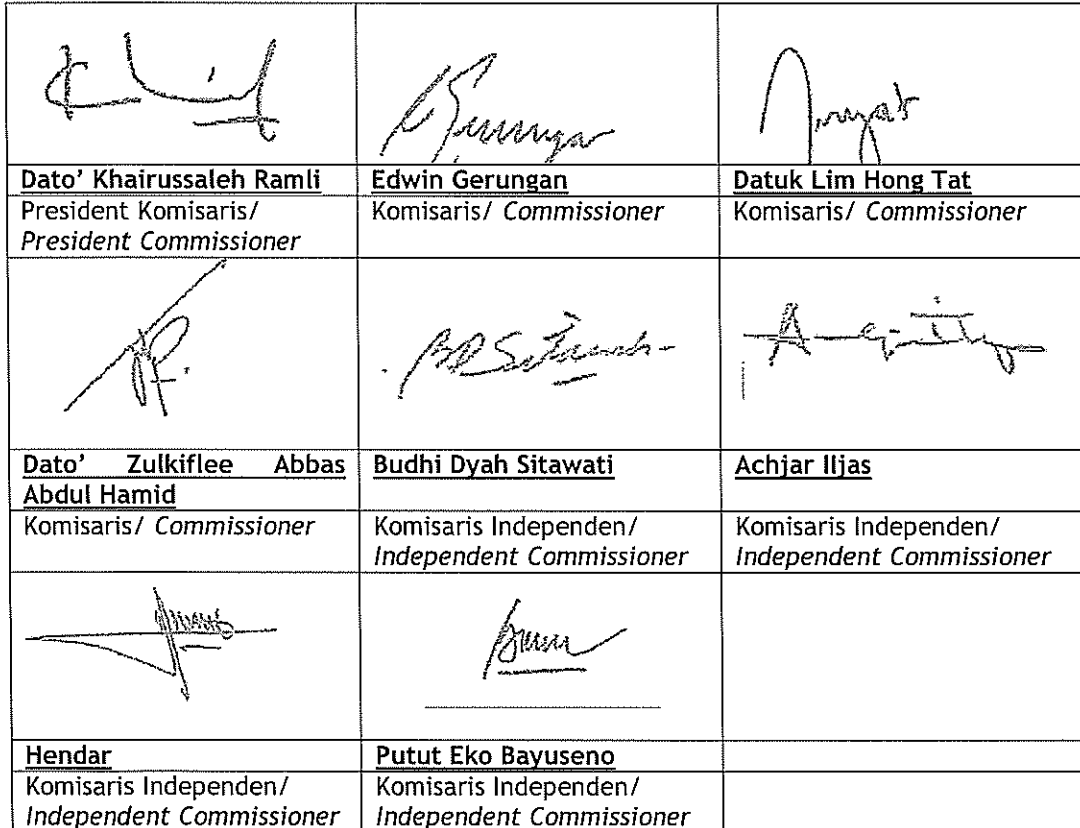 Dato' Khairussaleh Ramli
Edwin Gerungan
Datuk Lim Hong Tat
President Komisaris/
President Commissioner
Komisaris/ Commissioner
Komisaris/ Commissioner
Dato' Zulkiflee Abbas
Abdul Hamid
Budhi Dyah Sitawati
Achjar Iljas
Komisaris/ Commissioner
Komisaris Independen/
Independent Commissioner
Komisaris Independen/
Independent Commissioner
Hendar
Putut Eko Bayuseno
Komisaris Independen/
Independent Commissioner
Komisaris Independen/
Independent Commissioner